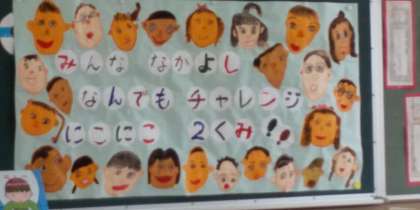 みんな なかよし
なんでも チャレンジ
にこにこ 2くみ